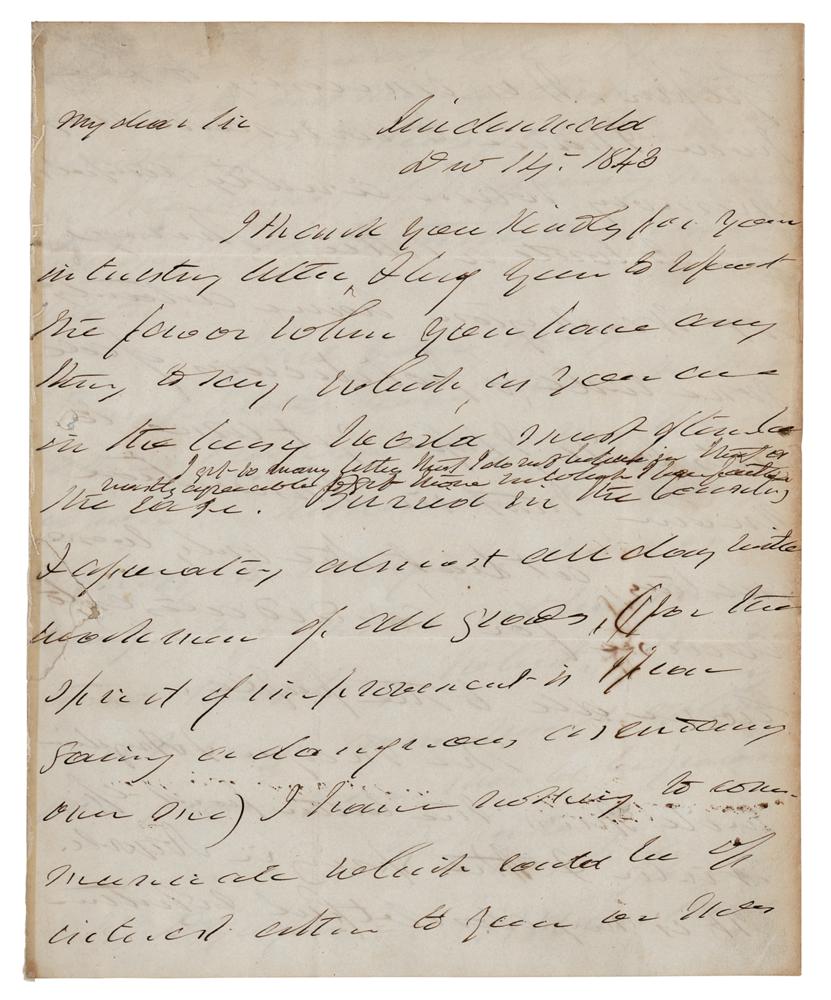 My dear Sir Lindenwald
Dec 14. 1843
I thank you kindly for your
interesting letter, & beg you to repeat
the favor when you have any
thing to say, which, as you are
in the busy World must often be
I get so many letters that I do not believe in that or
mostly agreeable
the case. Buried in the country
& operating almost all day with
workmen of all grades, (for the
spirit of improvement is
gaining a dangerous ascendancy
over me) I have nothing to com-
municate which could be of
interest either to you or